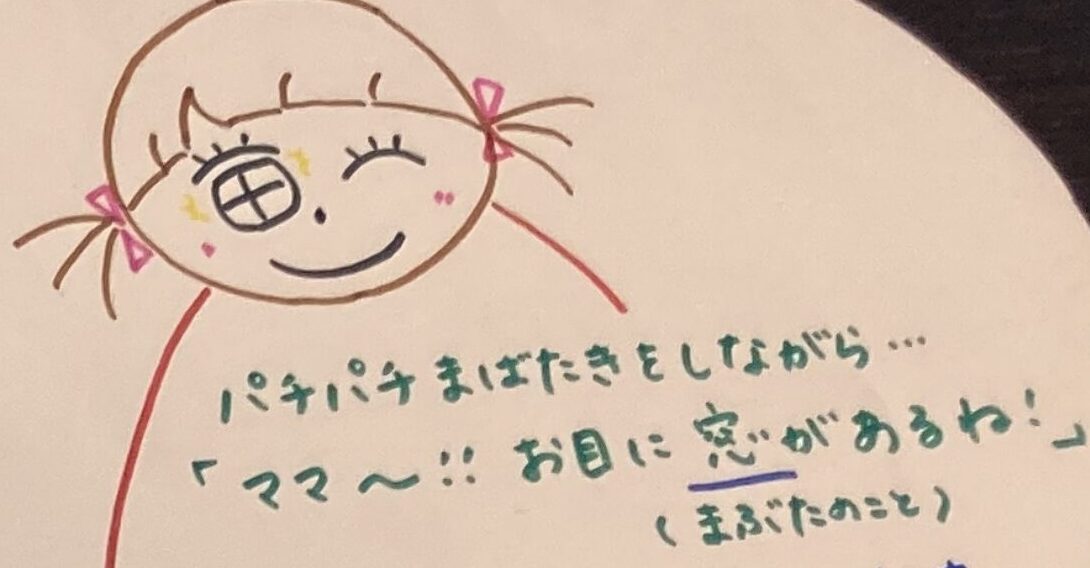 パチパチまばたきをしながら…
「ママ〜!! お目に窓があるね!」
(まぶたのこと)